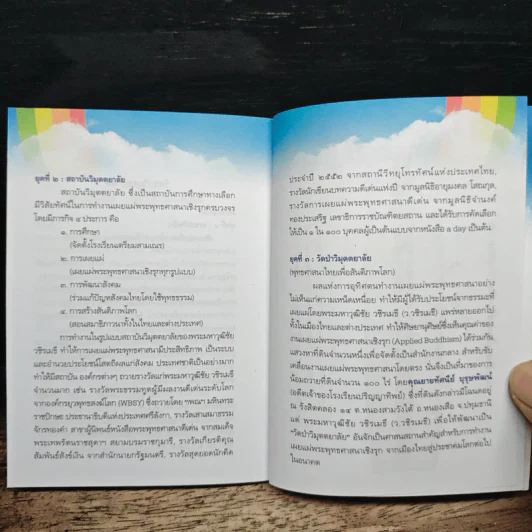 ยุคที่ ๒ : สถาบันวิมุตตยาลัย
สถาบันวิมุตตยาลัย ซึ่งเป็นสถาบันการศึกษาทางเลือก
มีวิสัยทัศน์ในการทำงานเผยแผ่พระพุทธศาสนาเชิงรุกครบวงจร
โดยมีภารกิจ ๔ ประการ คือ
๑. การศึกษา
(จัดตั้งโรงเรียนเตรียมสามเณร)
๒. การเผยแผ่
(เผยแผ่พระพุทธศาสนาเชิงรุกทุกรูปแบบ)
๓. การพัฒนาสังคม
(ร่วมแก้ปัญหาสังคมไทยโดยใช้พุทธธรรม)
๔. การสร้างสันติภาพโลก
(สอนสมาธิภาวนาทั้งในไทยและต่างประเทศ)
การทำงานในรูปแบบสถาบันวิมุตตยาลัยของพระมหาวุฒิชัย
วชิรเมธี ทำให้การเผยแผ่พระพุทธศาสนามีประสิทธิภาพ เป็นระบบ
และอำนวยประโยชน์โสตถิผลแก่สังคม ประเทศชาติเป็นอย่างมาก
ทำให้มีสถาบัน องค์กรต่างๆ ถวายรางวัลแก่พระมหาวุฒิชัย วชิรเมธี
จำนวนมาก เช่น รางวัลพระธรรมทูตผู้มีผลงานดีเด่นระดับโลก
จากองค์กรยุวพุทธสงฆ์โลก (WBSY) ซึ่งถวายโดย ฯพณฯ มหินทะ
ราชปักษะ ประธานาธิบดีแห่งประเทศศรีลังกา, รางวัลเสาเสมาธรรม
จักรทองคำ สาขาผู้นิพนธ์หนังสือพระพุทธศาสนาดีเด่น จากสมเด็จ
พระเทพรัตนราชสุดาฯ สยามบรมราชกุมารี, รางวัลเกียรติคุณ
สัมพันธ์สังข์เงิน จากสำนักนายกรัฐมนตรี, รางวัลสุดยอดนักคิด
ประจำปี ๒๕๕๒ จากสถานีวิทยุโทรทัศน์แห่งประเทศไทย,
รางวัลนักเขียนบทความดีเด่นแห่งปี จากมูลนิธิอายุมงคล โสณกุล,
รางวัลการเผยแผ่พระพุทธศาสนาดีเด่น จากมูลนิธิจำนงค์
ทองประเสริฐ เลขาธิการราชบัณฑิตยสถาน และได้รับการคัดเลือก
ให้เป็น ๑ ใน ๑๐๐ บุคคลผู้เป็นต้นแบบจากหนังสือ a day เป็นต้น.
ยุคที่ ๓ : วัดป่าวิมุตตยาลัย
(พุทธศาสนาไทยเพื่อสันติภาพโลก)
ผลแห่งการอุทิศตนทำงานเผยแผ่พระพุทธศาสนาอย่าง
ไม่เห็นแก่ความเหน็ดเหนื่อย ทำให้มีผู้ได้รับประโยชน์จากธรรมะที่
เผยแผ่โดยพระมหาวุฒิชัย วชิรเมธี (ว.วชิรเมธี) แพร่หลายออกไป
ทั้งในเมืองไทยและต่างประเทศ ทำให้ศิษยานุศิษย์ซึ่งเห็นคุณค่าของ
งานเผยแผ่พระพุทธศาสนาเชิงรุก (Applied Buddhism) ได้ร่วมกัน
แสวงหาที่ดินจำนวนหนึ่งเพื่อจัดตั้งเป็นสำนักงานกลาง สำหรับขับ
เคลื่อนงานเผยแผ่พระพุทธศาสนาโดยตรง นั่นจึงเป็นที่มาของการ
น้อมถวายที่ดินจำนวน ๑๐๐ ไร่ โดยคุณยายทัศนีย์ บุรุษพัฒน์
(อดีตเจ้าของโรงเรียนปริญญาทิพย์) ซึ่งที่ดินดังกล่าวมีโฉนดอยู่
ณ รังสิตคลอง ๑๔ ต.หนองสามวังใต้ อ.หนองเสือ จ.ปทุมธานี
แด่ พระมหาวุฒิชัย วชิรเมธี (ว.วชิรเมธี) เพื่อให้พัฒนาเป็น
"วัดป่าวิมุตตยาลัย" อันจักเป็นศาสนสถานสำคัญสำหรับการทำงาน
เผยแผ่พระพุทธศาสนาเชิงรุก จากเมืองไทยสู่ประชาคมโลกต่อไป
ในอนาคต